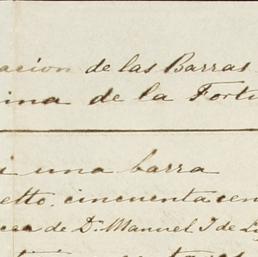 acion de las Barras
ina de la Fortu
i una barra
etto, cincuenta cen
cea de Dn. Manuel J de L